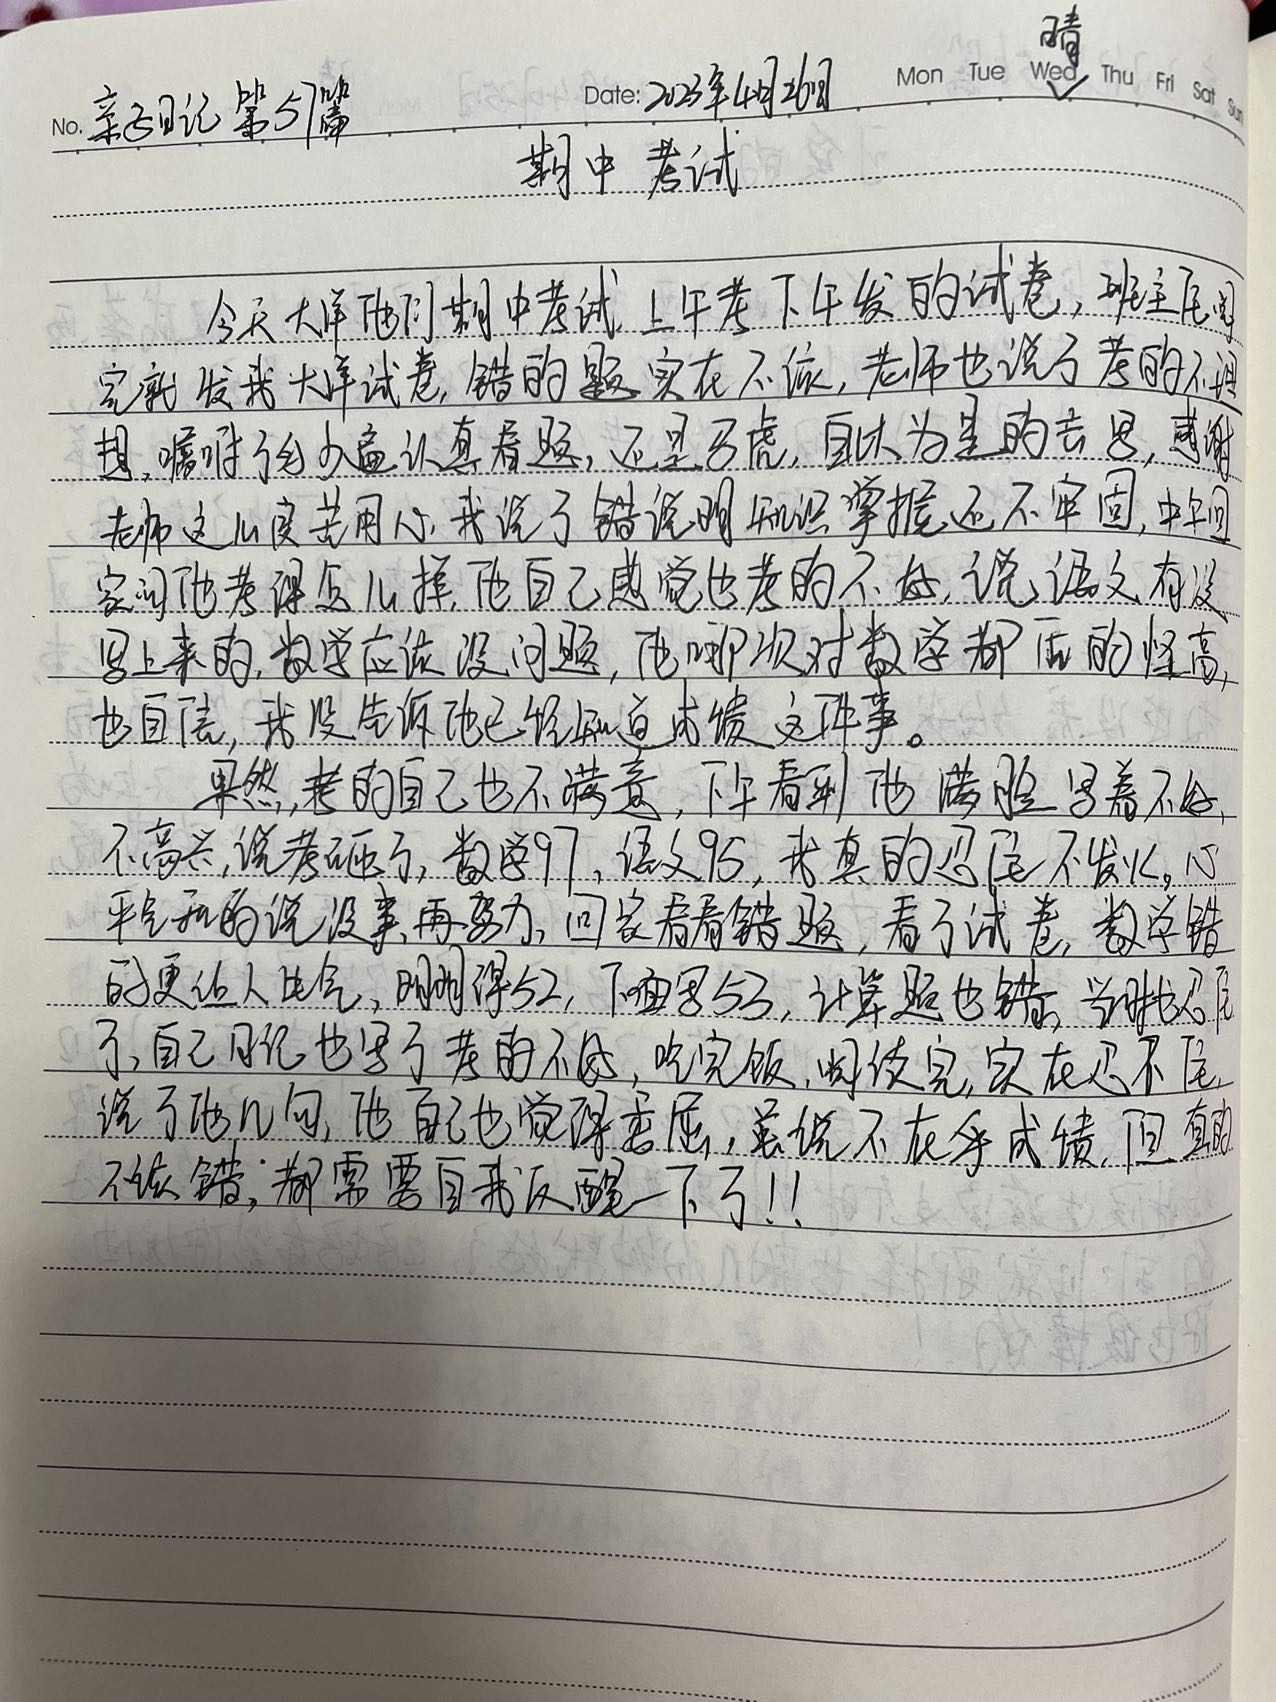 晴
Mon Tue Wed Thu Fri Sat Sun
No. 亲子日记第57篇 Date: 2023年4月26日
期中考试
今天大洋他们期中考试,上午考下午发的试卷,班主任阅
完就发我大洋试卷,错的题实在不该,老师也说了考的不理
想,嘱咐了多少遍认真看题,还是马虎,自以为是的去写,感谢
老师这么良苦用心,我说了错说明知识掌握还不牢固,中午回
家问他考得怎么样,他自己感觉也考的不好,说语文有没
写上来的,数学应该没问题,他哪次对数学都估的怪高,
也自信,我没告诉他已经知道成绩这件事。
果然,考的自己也不满意,下午看到他满脸写着不好,
不高兴,说考砸了,数学97,语文95,我真的忍住不发火。心
平气和的说没事,再努力,回家看看错题,看了试卷,数学错
的更让人生气,明明得52,下面写53,计算题也错,当时也忍住
了,自己日记也写了考的不好,吃完饭,阅读完,实在忍不住,
说了他几句,他自己也觉得委屈,虽说不在乎成绩,但真的
不该错,都需要自我反醒一下了!!